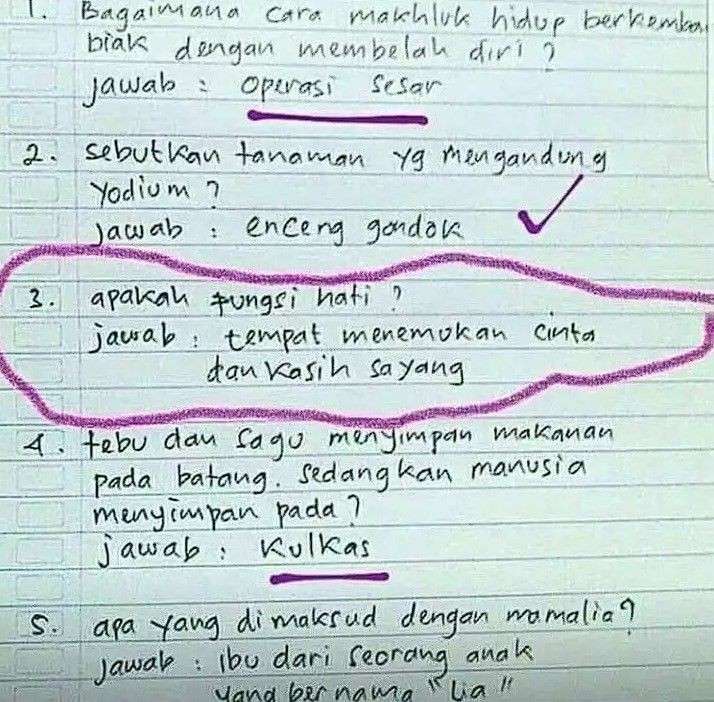 1. Bagaimana cara makhluk hidup berkembang
biak dengan membelah diri?
jawab : operasi sesar
2. sebutkan tanaman yg mengandung
yodium?
jawab : enceng gondok
3. apakah fungsi hati?
jawab : tempat menemukan cinta
dan kasih sayang
4. tebu dan sagu menyimpan makanan
pada batang. sedangkan manusia
menyimpan pada?
jawab : kulkas
5. apa yang dimaksud dengan mamalia?
jawab : ibu dari seorang anak
yang bernama "Lia"